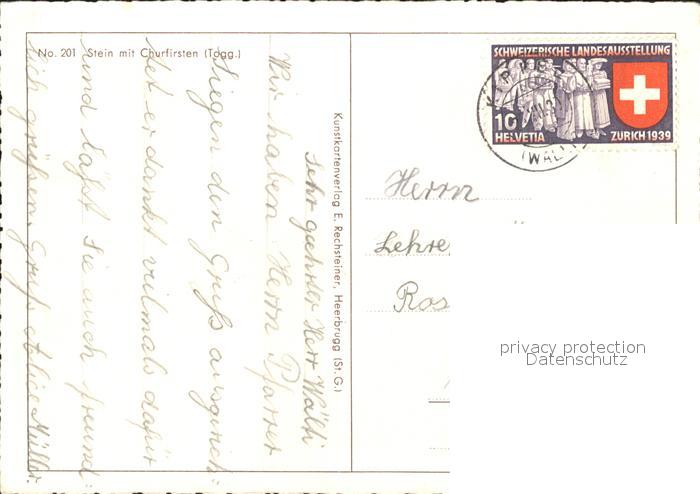 No. 201 Stein mit Churfirsten (Togg.)
Sehr geehrter Herr Wälti
Wir haben Herrn Pfarrer
Liegen den Gruß ausgerich-
tet er dankt veilmals dafür
und läßt Sie auch freund-
lich grüßen. Gruß Alice Müller.
Kunstkartenverlag E. Rechsteiner, Heerbrugg (St. G.)
SCHWEIZERISCHE LANDESAUSSTELLUNG
10
HELVETIA
ZURICH 1939
(WALL
Herrn
Lehre
Ros
privacy protection
Datenschutz